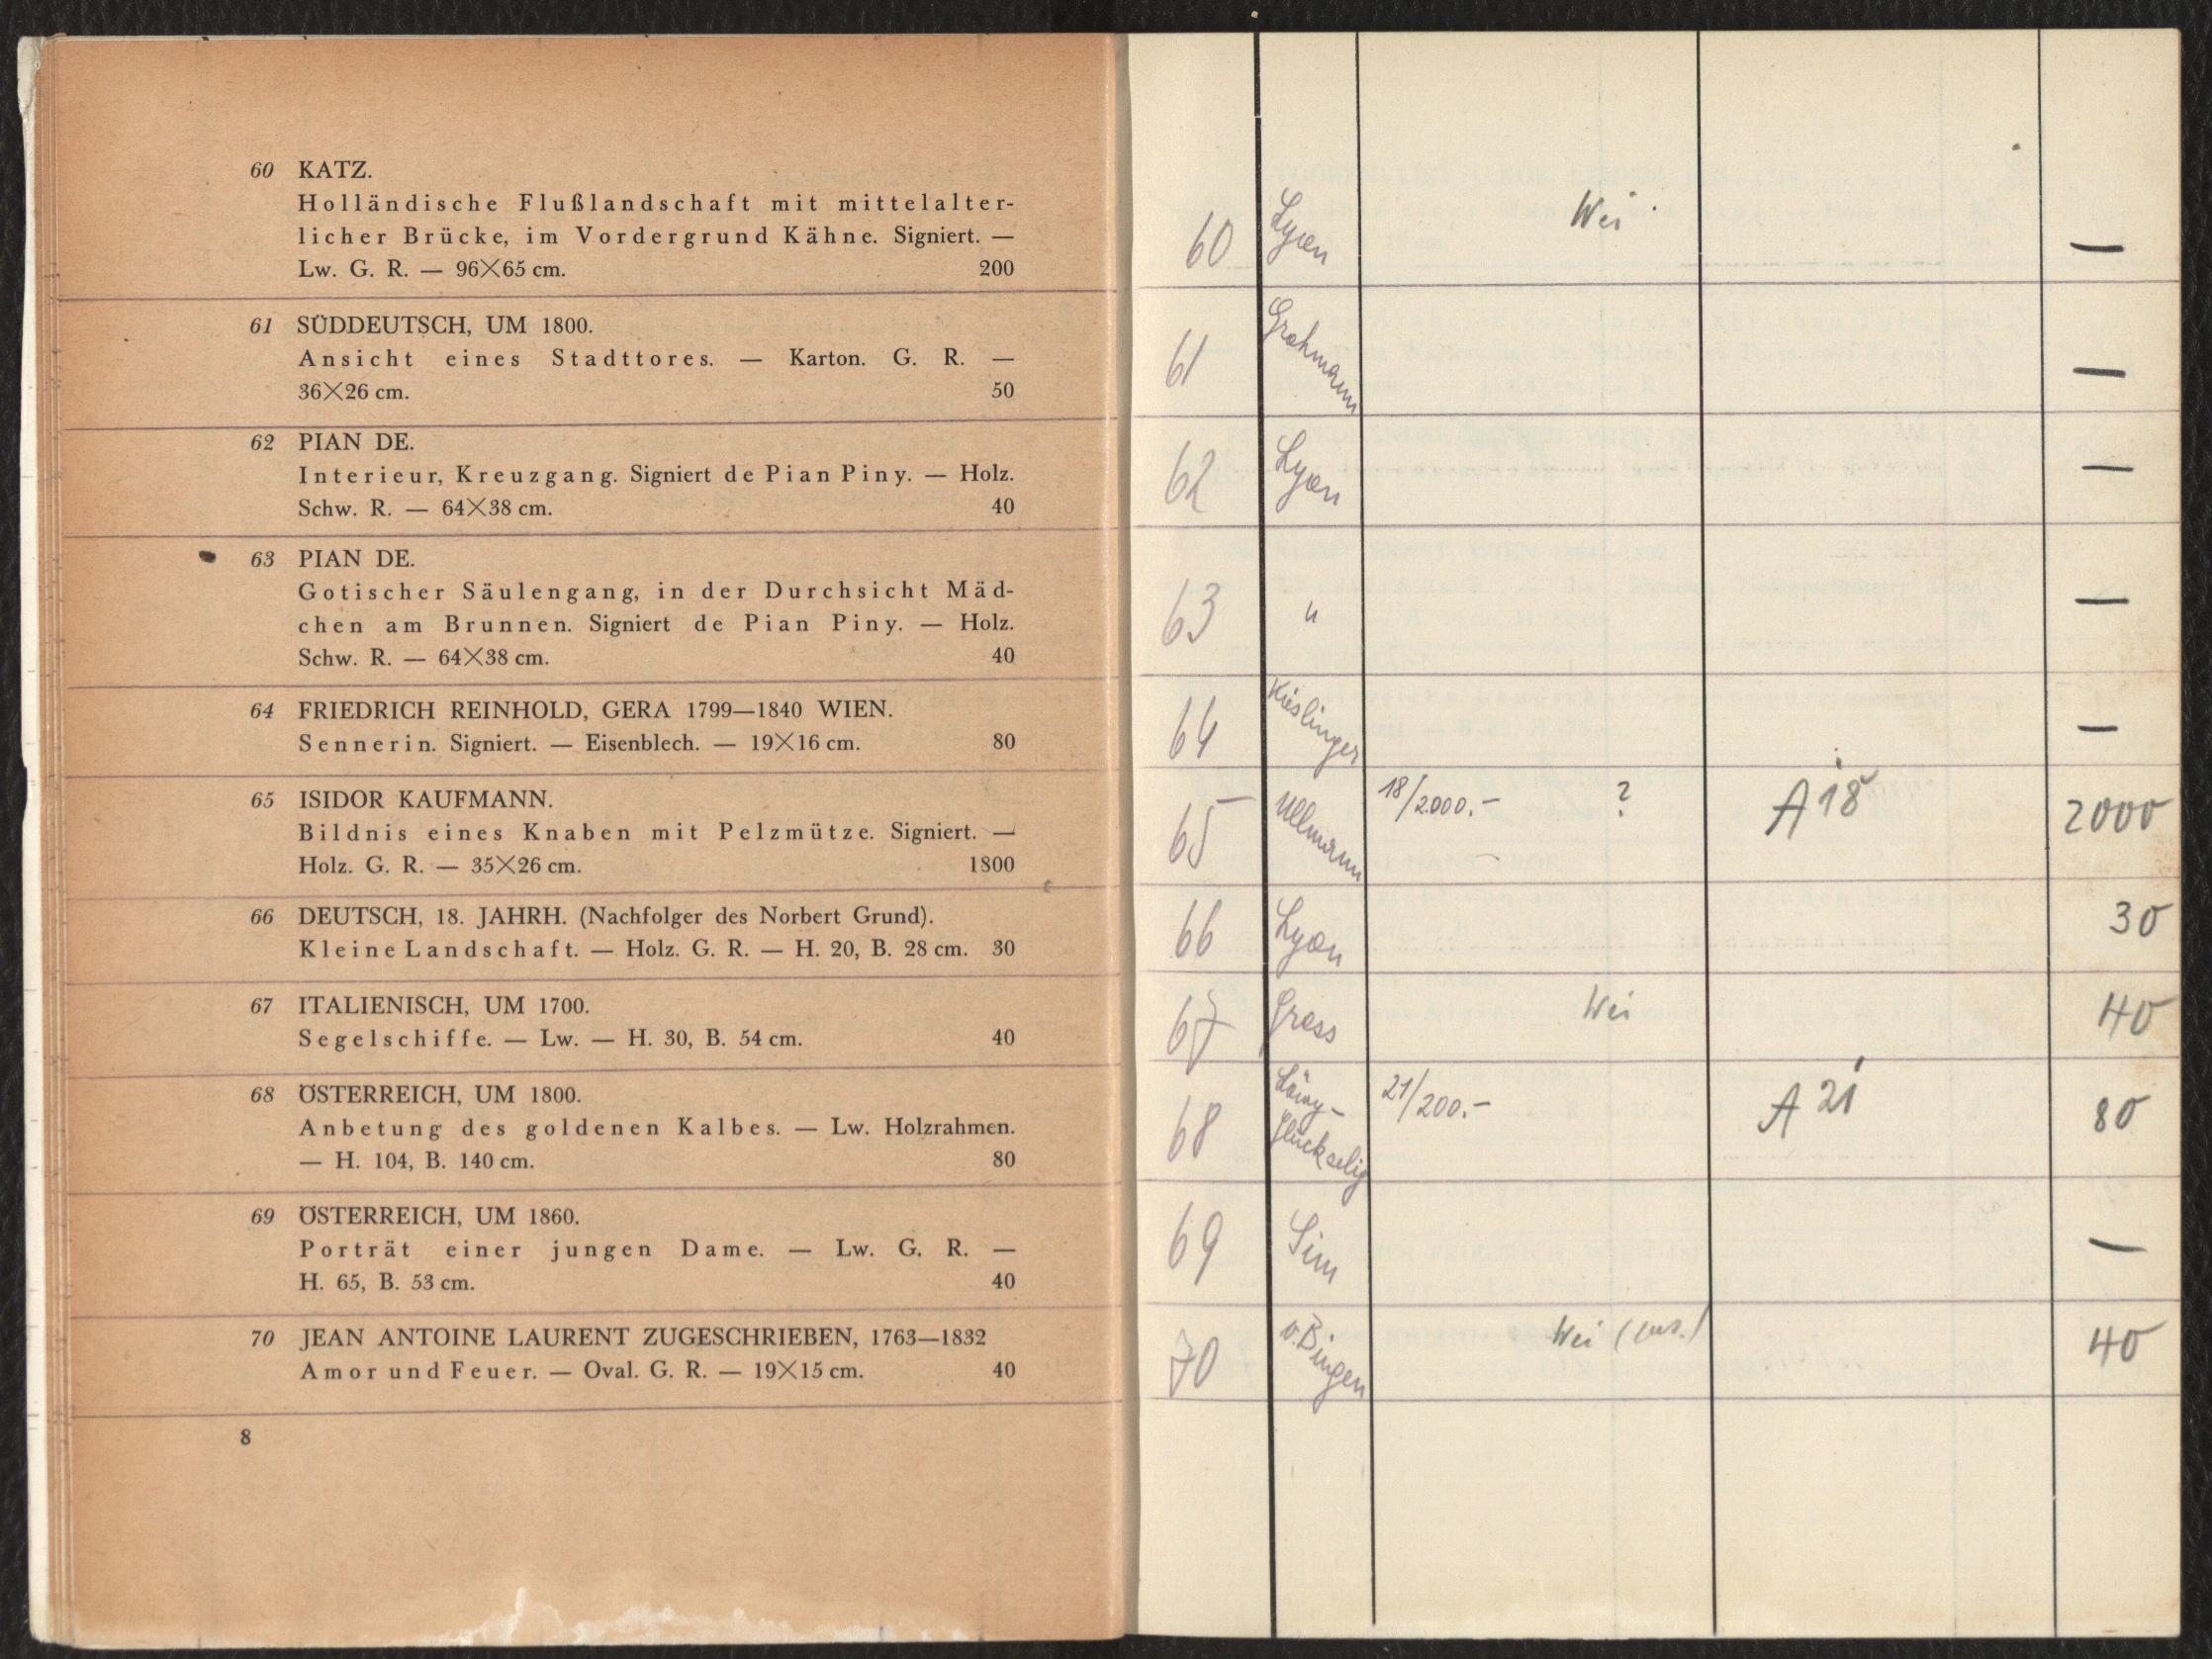 60 KATZ.
Holländische Flußlandschaft mit mittelalter-
licher Brücke, im Vordergrund Kähne. Signiert. —
Lw. G. R. — 96×65 cm. 200
61 SÜDDEUTSCH, UM 1800.
Ansicht eines Stadttores. — Karton. G. R. —
36×26 cm. 50
62 PIAN DE.
Interieur, Kreuzgang. Signiert de Pian Piny. — Holz.
Schw. R. — 64×38 cm. 40
63 PIAN DE.
Gotischer Säulengang, in der Durchsicht Mäd-
chen am Brunnen. Signiert de Pian Piny. — Holz.
Schw. R. — 64×38 cm. 40
64 FRIEDRICH REINHOLD, GERA 1799—1840 WIEN.
Sennerin. Signiert. — Eisenblech. — 19×16 cm. 80
65 ISIDOR KAUFMANN.
Bildnis eines Knaben mit Pelzmütze. Signiert. —
Holz. G. R. — 35×26 cm. 1800
66 DEUTSCH, 18. JAHRH. (Nachfolger des Norbert Grund).
Kleine Landschaft. — Holz. G. R. — H. 20, B. 28 cm. 30
67 ITALIENISCH, UM 1700.
Segelschiffe. — Lw. — H. 30, B. 54 cm. 40
68 ÖSTERREICH, UM 1800.
Anbetung des goldenen Kalbes. — Lw. Holzrahmen.
— H. 104, B. 140 cm. 80
69 ÖSTERREICH, UM 1860.
Porträt einer jungen Dame. — Lw. G. R. —
H. 65, B. 53 cm. 40
70 JEAN ANTOINE LAURENT ZUGESCHRIEBEN, 1763—1832
Amor und Feuer. — Oval. G. R. — 19×15 cm. 40
8
60 Lyon Wei —
61 Grohmann —
62 Lyon —
63 " —
64 Kieslinger —
65 Ullmann 18/2000.- ? A 18 2000
66 Lyon 30
67 Gross Wei 40
68 Glückselig 21/200.- A 21 80
69 Sim —
70 v. Bingen Wei 40